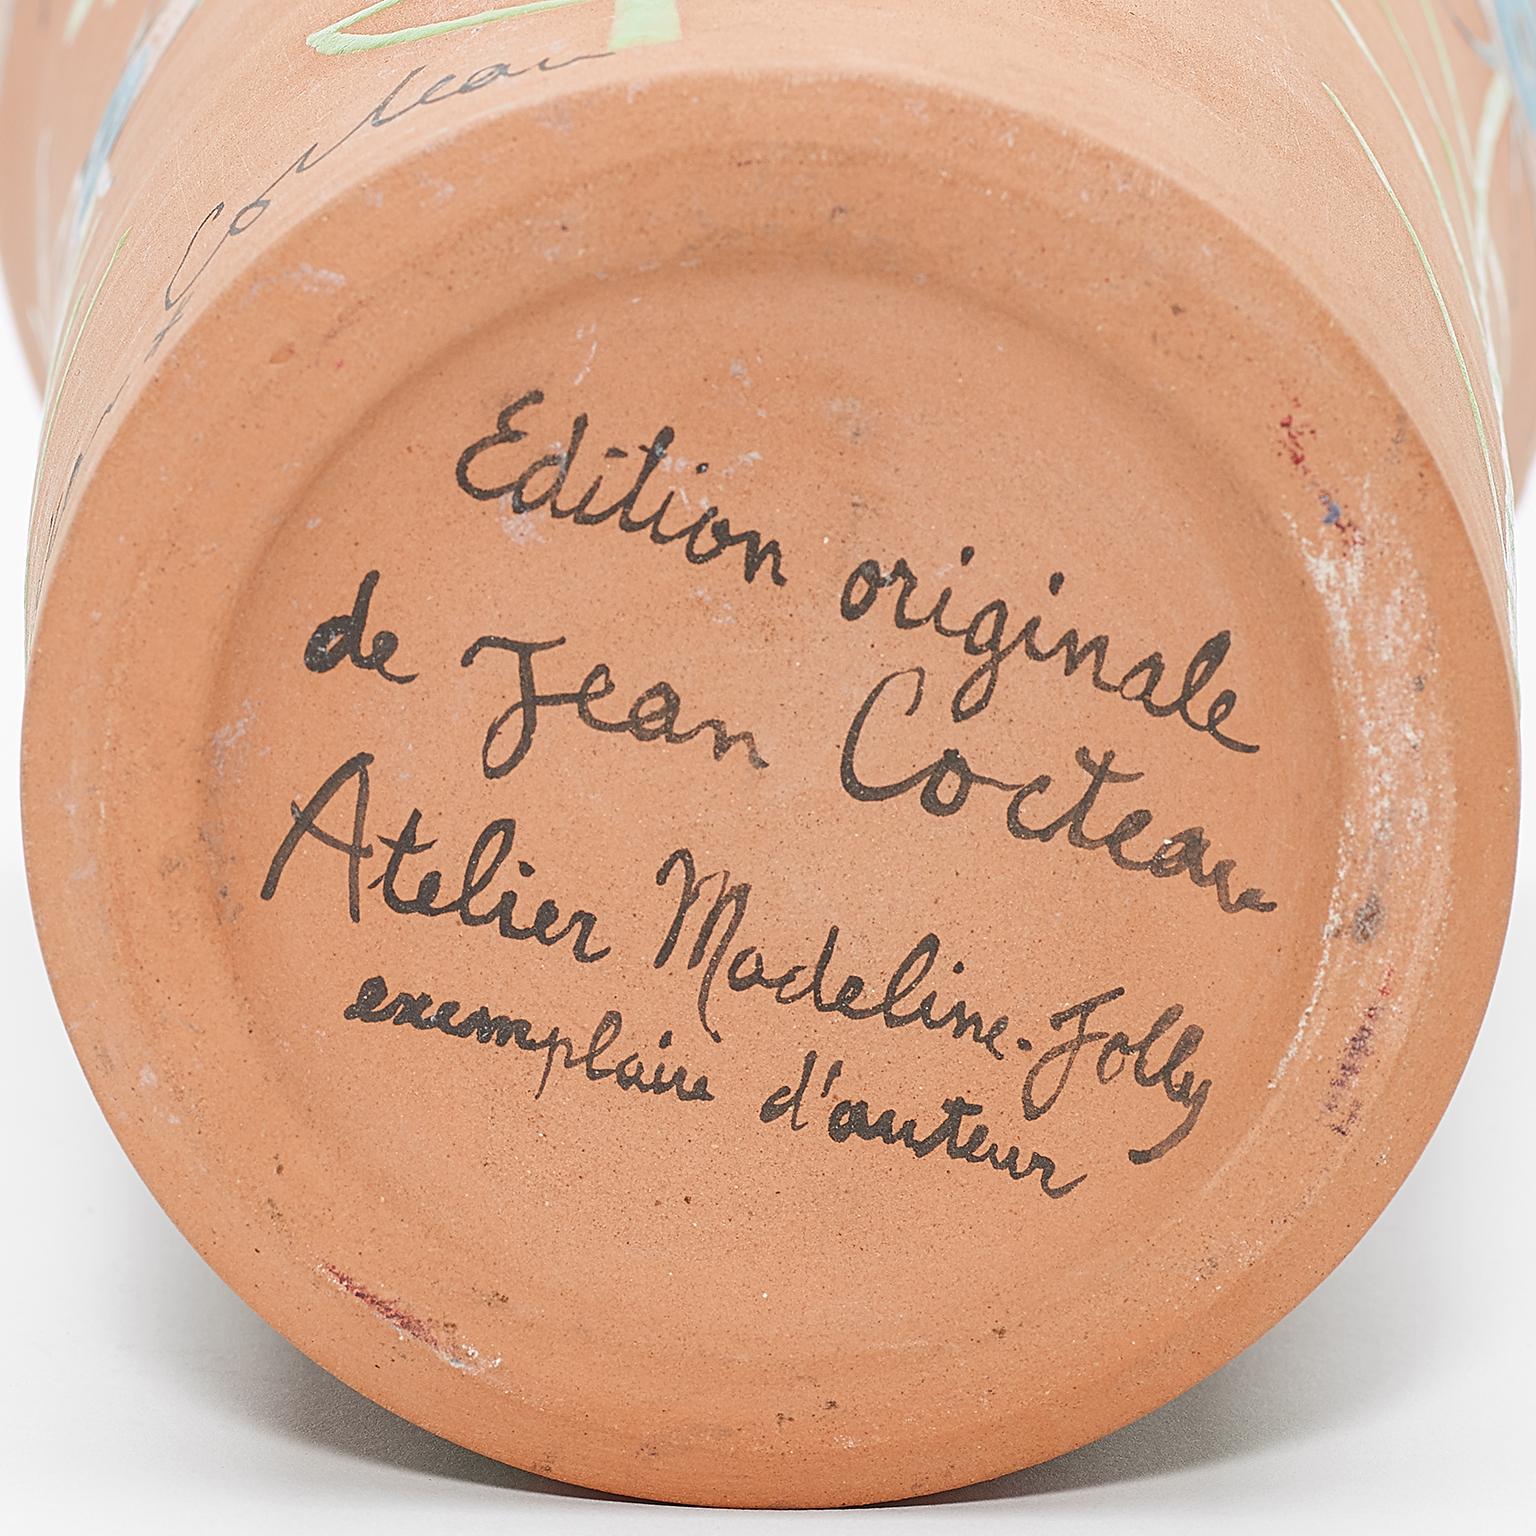 Cocteau
Edition originale
de Jean Cocteau
Atelier Madeline-Jolly
exemplaire d'auteur